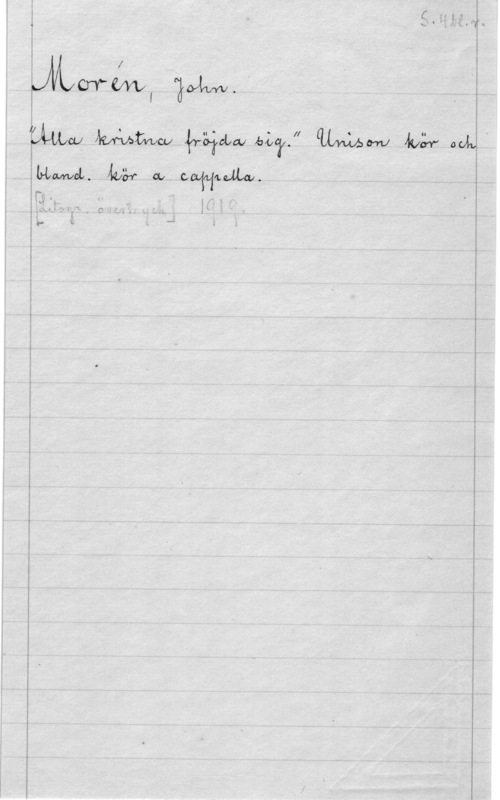 S. 4 bl. r.
Morén, John.
"Alla kristna fröjda sig." Unison kör och
bland. kör a cappella.
[Litogr. övertryck] 1919.